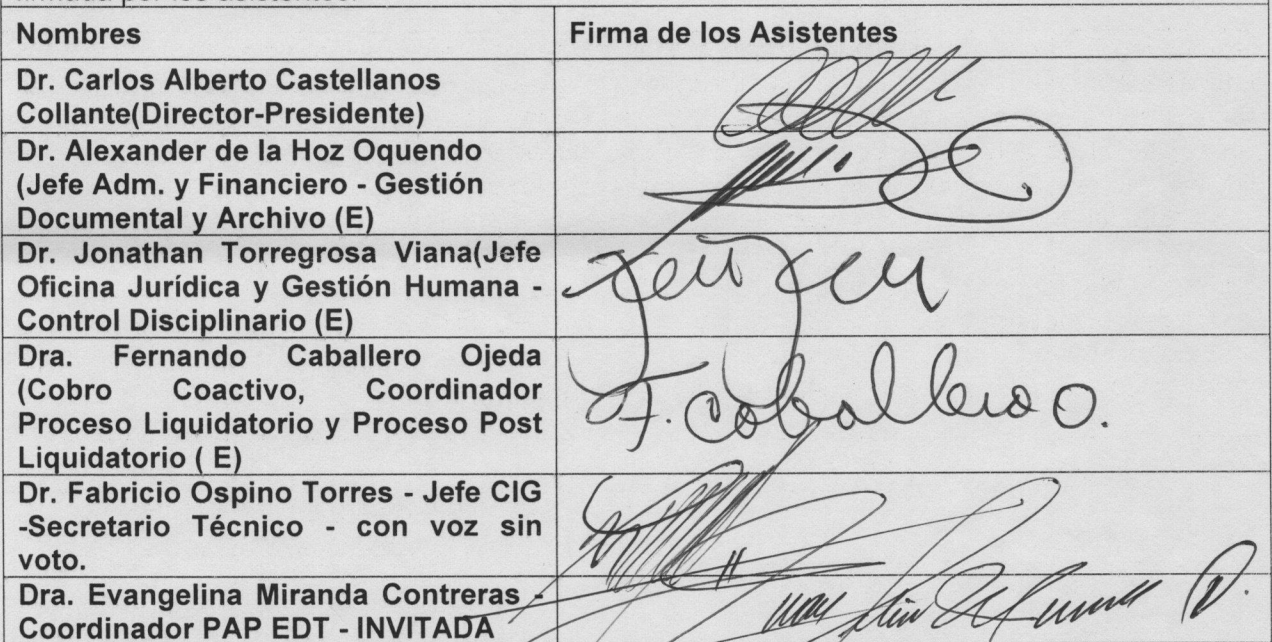 firmada por los asistentes.
Nombres
Firma de los Asistentes
Dr. Carlos Alberto Castellanos
Collante(Director-Presidente)
Dr. Alexander de la Hoz Oquendo
(Jefe Adm. y Financiero - Gestión
Documental y Archivo (E)
Dr. Jonathan Torregrosa Viana(Jefe
Oficina Jurídica y Gestión Humana -
Control Disciplinario (E)
Dra. Fernando Caballero Ojeda
(Cobro Coactivo, Coordinador
Proceso Liquidatorio y Proceso Post
Liquidatorio ( E)
F. Caballero O.
Dr. Fabricio Ospino Torres - Jefe CIG
-Secretario Técnico - con voz sin
voto.
Dra. Evangelina Miranda Contreras -
Coordinador PAP EDT - INVITADA